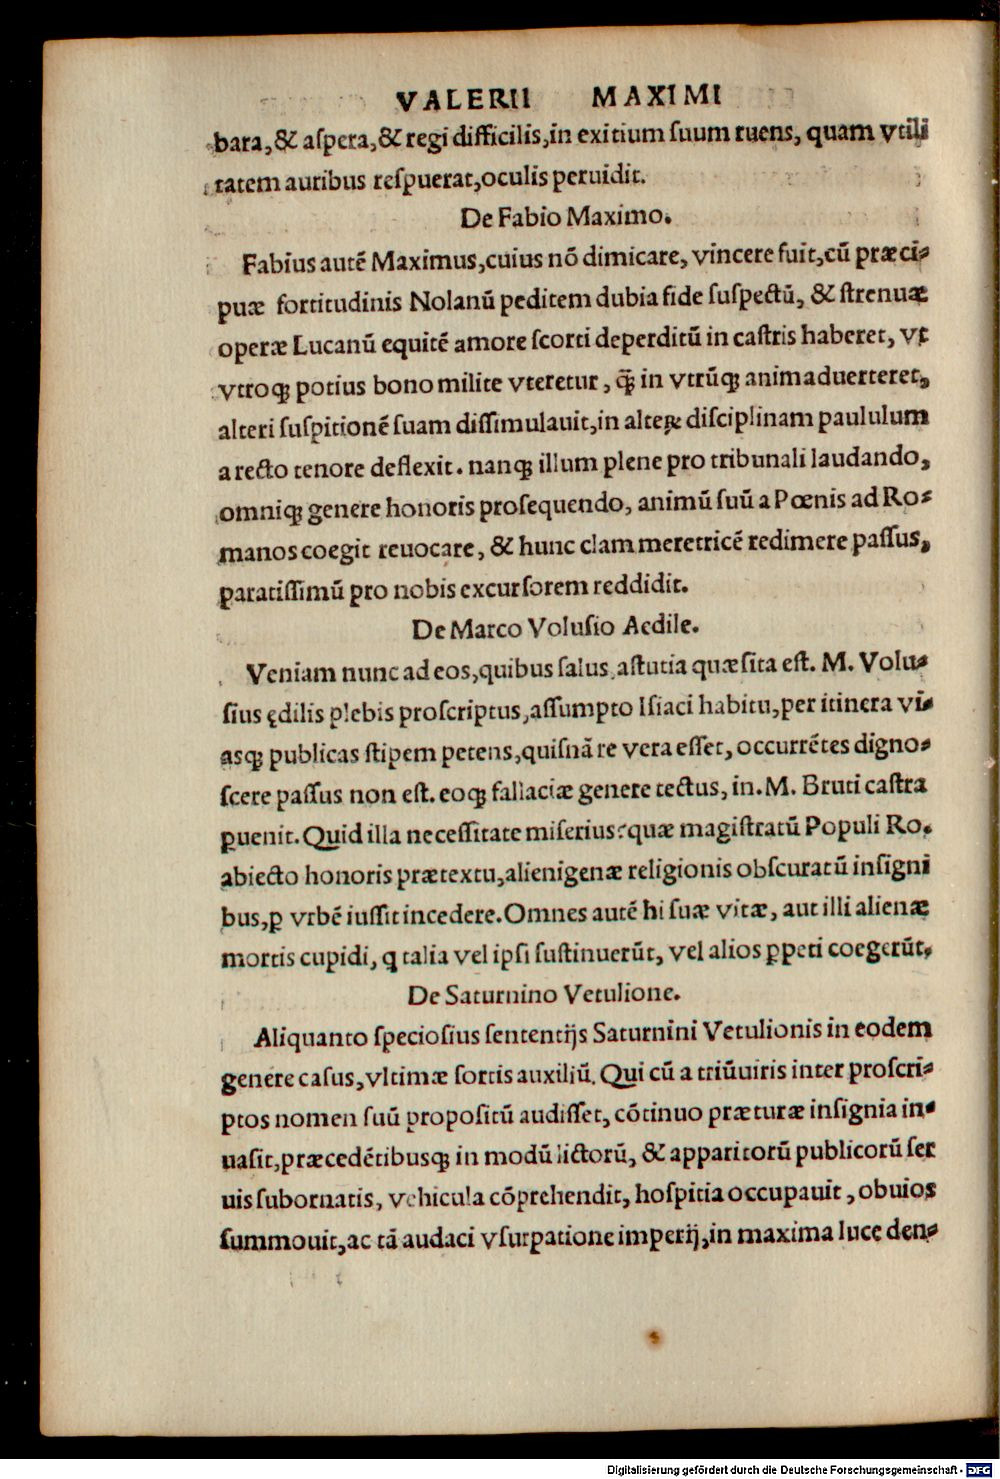 VALERII MAXIMI
bara, & aſpera, & regi difficilis, in exitium ſuum ruens, quam vtili
tatem auribus reſpuerat, oculis peruidit.
De Fabio Maximo.
Fabius autē Maximus, cuius nō dimicare, vincere fuit, cū præci-
puæ fortitudinis Nolanū peditem dubia fide ſuſpectū, & ſtrenuæ
operæ Lucanū equitē amore ſcorti deperditū in caſtris haberet, vt
vtroq; potius bono milite vteretur, q̄ȝ in vtrūq; animaduerteret,
alteri ſuſpitionē ſuam diſſimulauit, in alteꝝ diſciplinam paululum
a recto tenore deflexit. nanq; illum plene pro tribunali laudando,
omniq; genere honoris proſequendo, animū ſuū a Pœnis ad Ro-
manos coegit reuocare, & hunc clam meretricē redimere paſſus,
paratiſſimū pro nobis excurſorem reddidit.
De Marco Voluſio Aedile.
Veniam nunc ad eos, quibus ſalus, aſtutia quæſita eſt. M. Volu-
ſius ędilis plebis proſcriptus, aſſumpto Iſiaci habitu, per itinera vi-
asq; publicas ſtipem petens, quiſnā re vera eſſet, occurrētes digno-
ſcere paſſus non eſt. eoq; fallaciæ genere tectus, in. M. Bruti caſtra
ꝑuenit. Quid illa neceſſitate miſerius? quæ magiſtratū Populi Ro.
abiecto honoris prætextu, alienigenæ religionis obſcuratū inſigni
bus, ꝑ vrbē iuſſit incedere. Omnes autē hi ſuæ vitæ, aut illi alienæ
mortis cupidi, q talia vel ipſi ſuſtinuerūt, vel alios ꝑpeti coegerūt.
De Saturnino Vetulione.
Aliquanto ſpecioſius ſententijs Saturnini Vetulionis in eodem
genere caſus, vltimæ ſortis auxiliū. Qui cū a triūuiris inter proſcri-
ptos nomen ſuū propoſitū audiſſet, cōtinuo præturæ inſignia in-
uaſit, præcedētibusq; in modū lictorū, & apparitorū publicorū ſer
uis ſubornatis, vehicula cōprehendit, hoſpitia occupauit, obuios
ſummouit, ac tā audaci vſurpatione imperij, in maxima luce den-
Digitalisierung gefördert durch die Deutsche Forschungsgemeinschaft - DFG